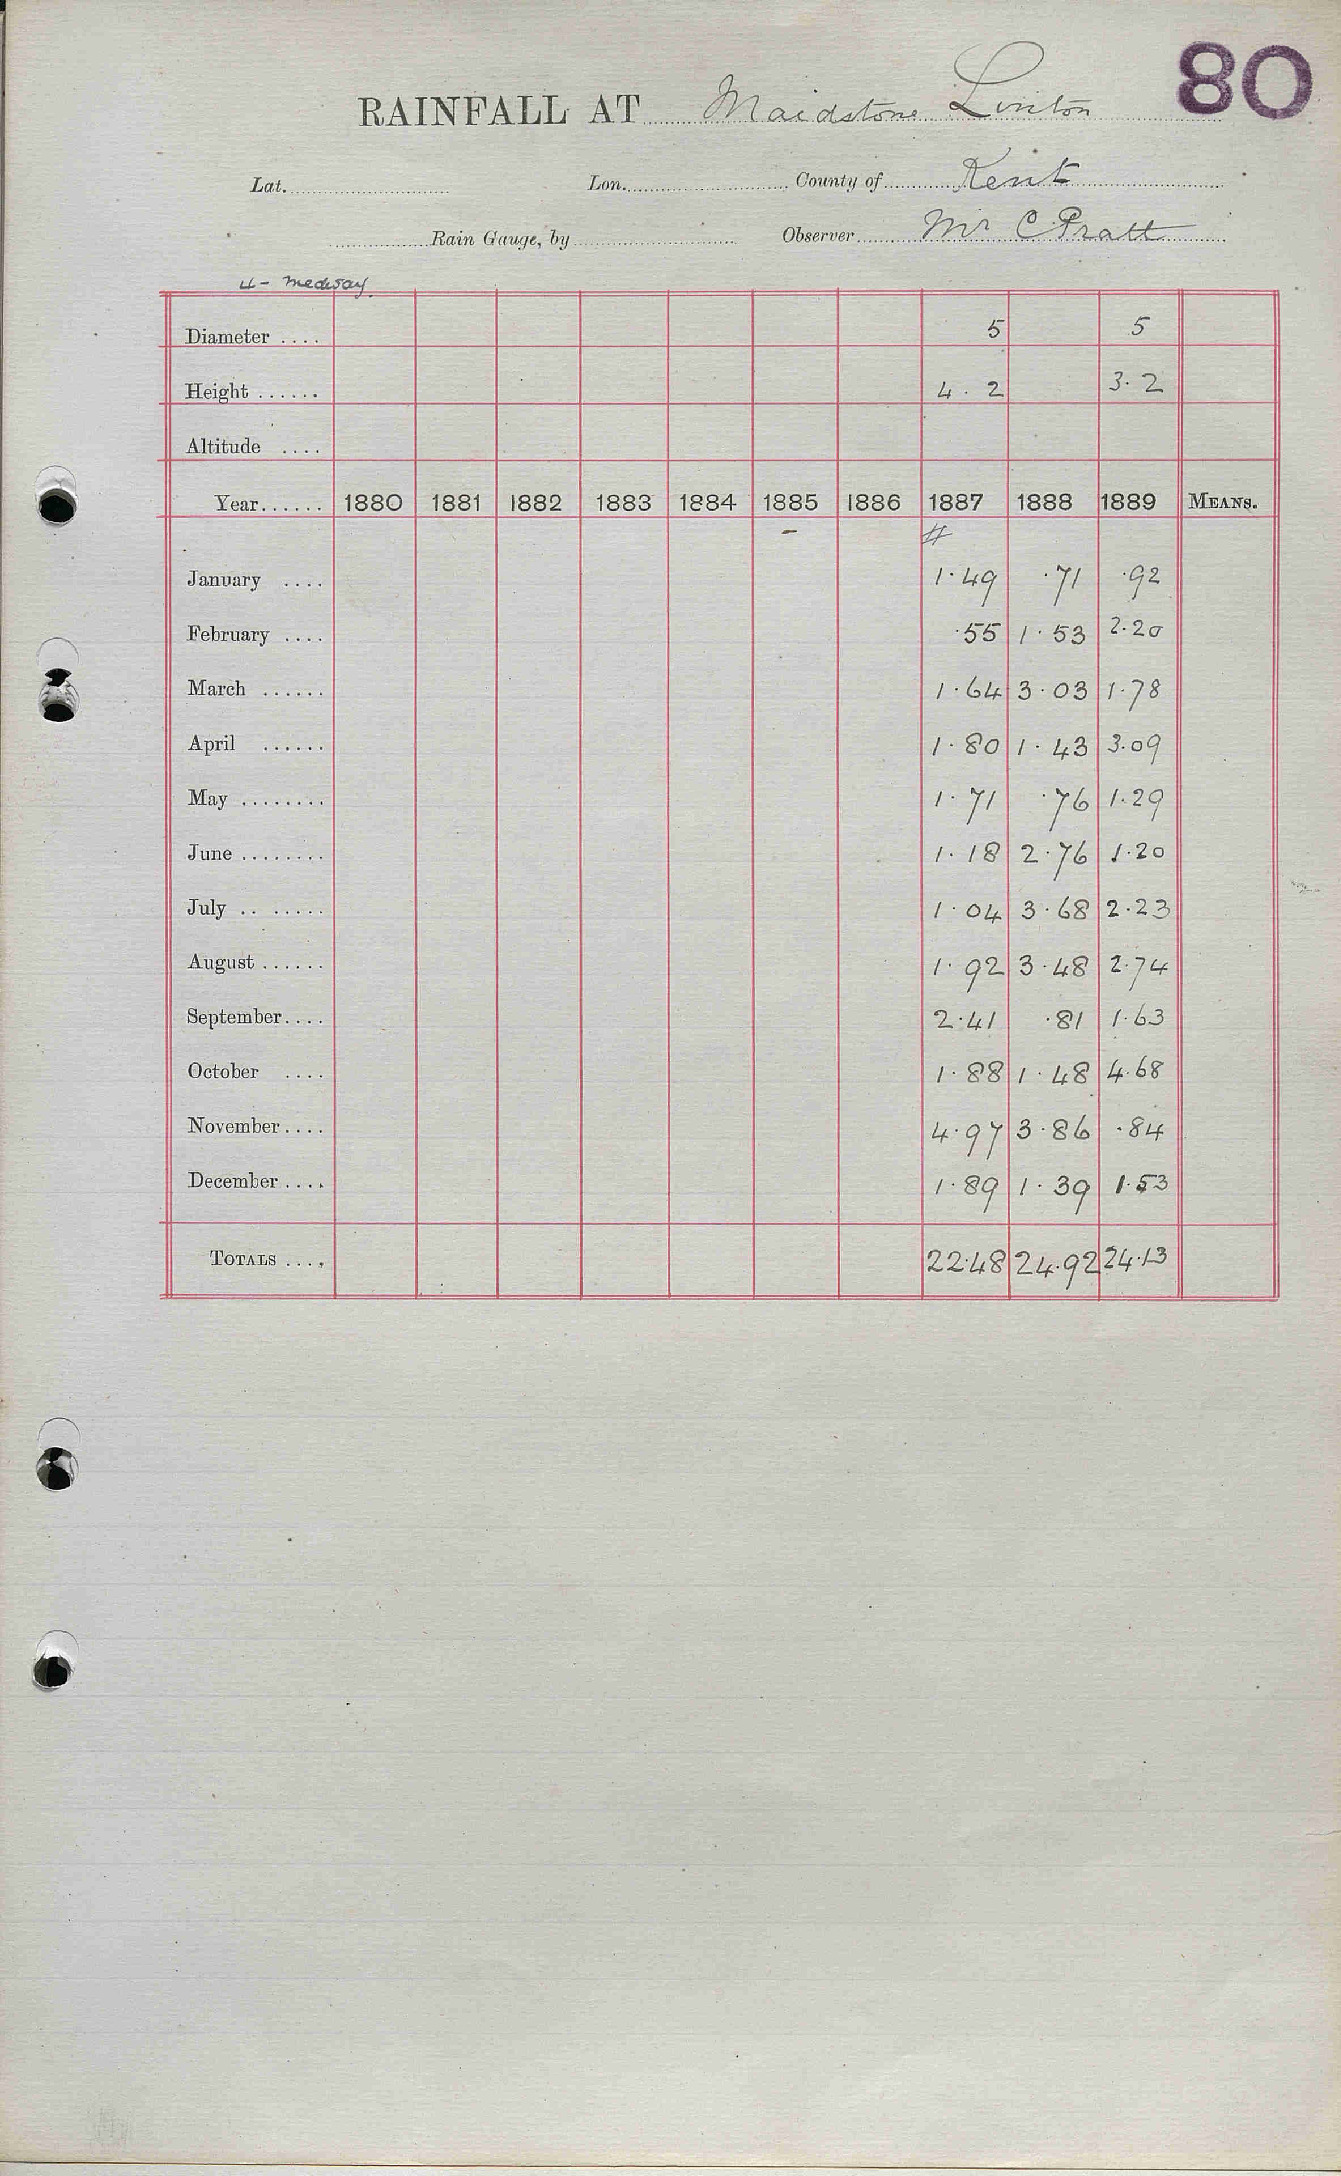 80
RAINFALL AT Maidstone Linton
Lat. Lon. County of Kent
Rain Gauge, by Observer Mr C Pratt
4 - Medway
Diameter .... 5 5
Height ...... 4 . 2 3.2
Altitude ....
Year...... 1880 1881 1882 1883 1884 1885 1886 1887 1888 1889 MEANS.
- #
January .... 1.49 .71 .92
February .... .55 1.53 2.20
March ...... 1.64 3.03 1.78
April ...... 1.80 1.43 3.09
May ........ 1.71 .76 1.29
June ........ 1.18 2.76 1.20
July .. ...... 1.04 3.68 2.23
August ...... 1.92 3.48 2.74
September.... 2.41 .81 1.63
October .... 1.88 1.48 4.68
November.... 4.97 3.86 .84
December.... 1.89 1.39 1.53
TOTALS .... 22.48 24.92 24.13